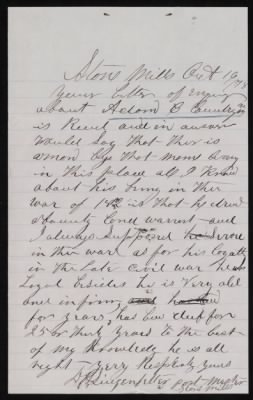 Stone Mills Oct 16/78
Your letter of enquiry
about Adam B Countryman
is Recvt and in answer
would Say that ther is
a man bye that name living
in this place all I know
about his being in the
war of 1812 is that he drew
a bounty Land warrent and
I always Supposed he Serve
in the war as for his loyalty
in the late civil war he was
Loyal besides he is Very old
and infirm and has bin
for years, has bin deef for
25 or thirty years to the best
of my Knowledg he is all
right Very Respectfy Yours
Post Master
Stone Mills